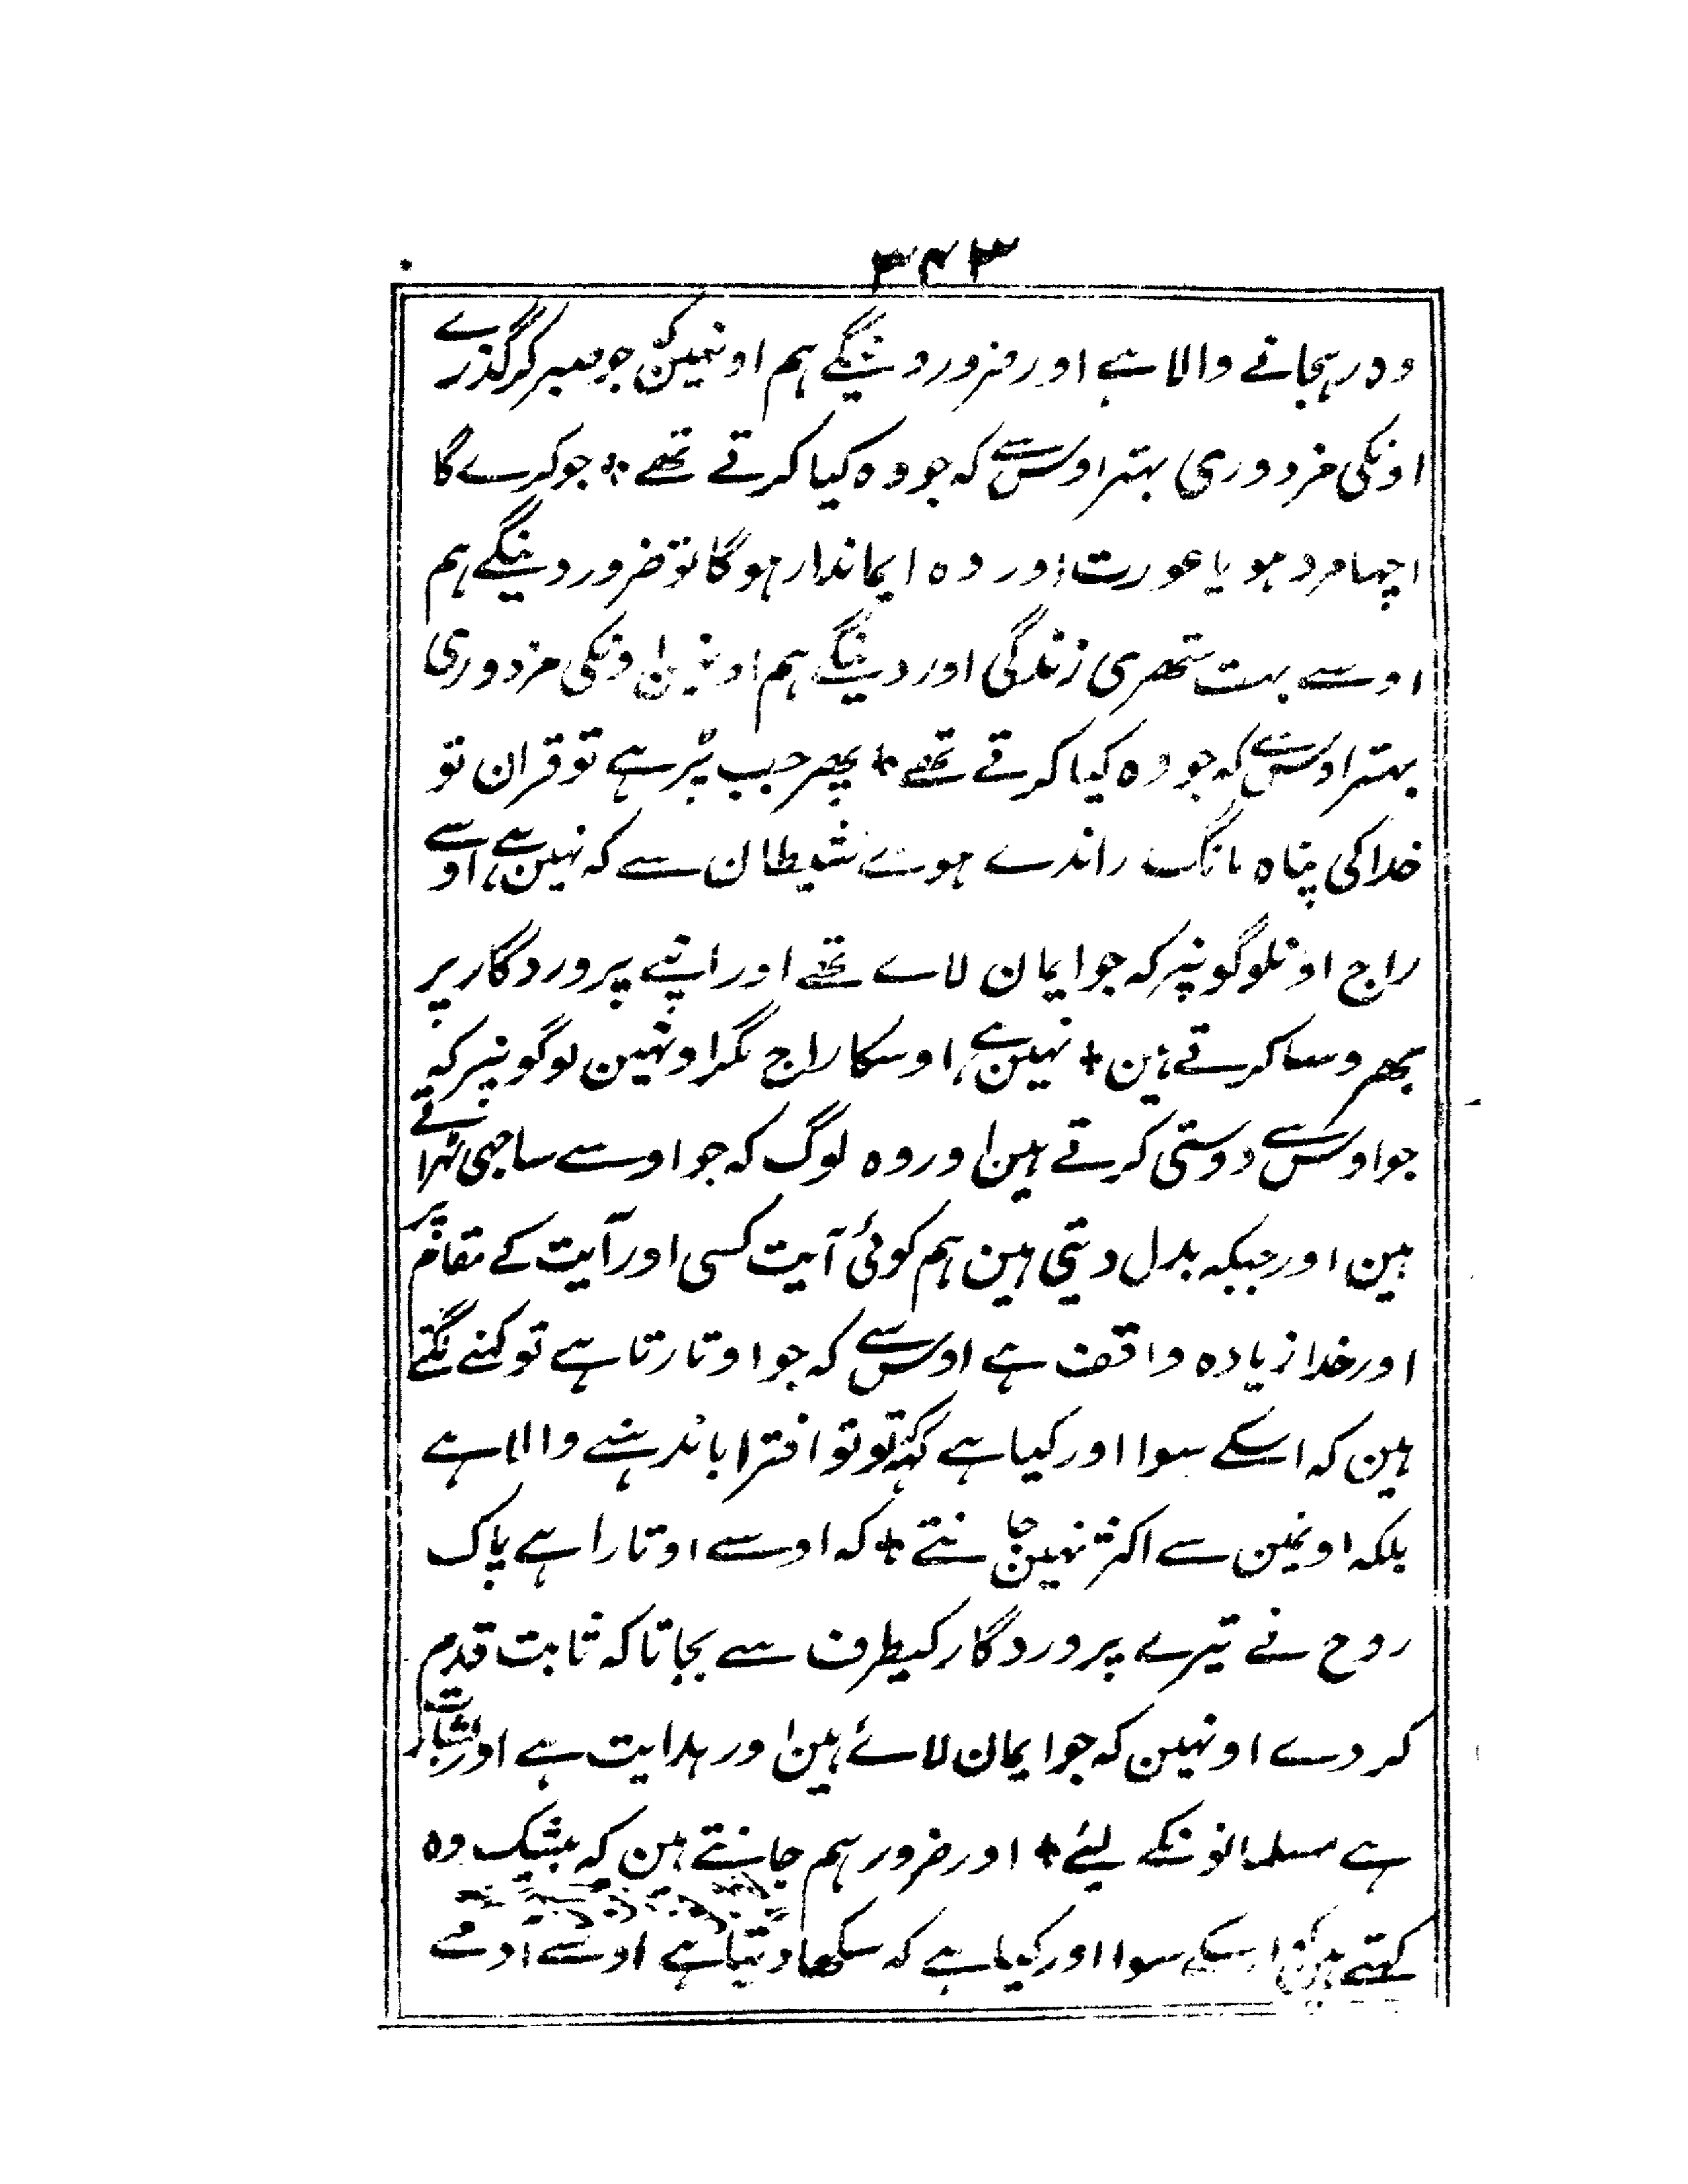 ۳۴۳
وہ رہجانے والا ہے اور ضرور دینگے ہم اونہین کہ جو صبر کر گذرے
اونکی مزدوری بہتر اوس سے کہ جو وہ کیا کرتے تھے + جو کرے گا
اچہا مرد ہو یا عورت اور وہ ایماندار ہوگا تو ضرور دینگے ہم
اوسے بہت ستھری زندگی اور دینگے ہم اونہین اونکی مزدوری
بہتر اوس سے کہ جو وہ کیا کرتے تھے + پھر جب پڑہے تو قران تو
خدا کی پناہ مانگ راندے ہوے شیطان سے کہ نہین ہے اوسے
راج اونلوگونپر کہ جو ایمان لاے تھے اور اپنے پروردگار پر
بھروسا کرتے ہین + نہین ہے اوسکا راج مگر اونہین لوگونپر کہ
جو اوس سے دوستی کرتے ہین اور وہ لوگ کہ جو اوسے ساجہی ٹہراتے
ہین اور جبکہ بدل دیتی ہین ہم کوئی آیت کسی اور آیت کے مقام پر
اور خدا زیادہ واقف ہے اوس سے کہ جو اوتارتا ہے تو کہنے لگتے
ہین کہ اسکے سوا اور کیا ہے کہ تو تو افترا باندہنے والا ہے
بلکہ اونمین سے اکثر نہین جانتے + کہ اوسے اوتارا ہے پاک
روح نے تیرے پروردگار کیطرف سے بجا تاکہ ثابت قدم
کردے اونہین کہ جو ایمان لائے ہین اور ہدایت ہے اور بشارت
ہے مسلمانونکے لیئے + اور ضرور ہم جانتے ہین کہ بیشک وہ
کہتے ہین کہ اسکے سوا اور کیا ہے کہ سکھا دیتا ہے اوسے